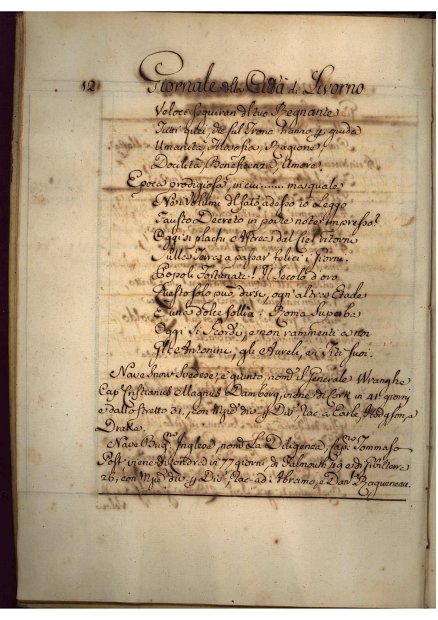 12 Giornale della Città di Livorno
Veloce seguiran del tuo Regnante
Tutti quei, che sul Trono hanno p. guida
Umanità, Filosofia, Ragione
Docilità, Beneficenza, Amore.
Epoca prodigiosa, in cui ....... ma quale
Non Volumi del fato adesso io Leggo
Fausto Decreto in poche note impresso?
Oggi si plachi e Astrea dal Ciel ritorni
Sulla Terra a passar felici i giorni.
Popoli Fortunati! Il Secolo d'oro
Questo solo può dirsi, ogn'altra Etade
È una dolce follia: Roma Superba
Oggi Si Scordi, e non rammenti a noi
Gl'Antonini, gli Aureli, e i Titi suoi.
Nave Snow Svedese, è giunto, nom. il Generale Wranghe
Cap. Cristianus Magnus Damberg, viene di Cork in 41 giorni
e dallo stretto 31, con Mzie div. p. Div. rac. a Earle, Hodgson, e
Drake.
Nave Brig.no Inglese nom. La Diligenza, Cap.no Tommaso
Post, viene di Londra in 77 giorni, di Falmouth 49 e di Gibilterra
26, con Mzie div. p. Div. rac. ad: Abramo, e Dan. Ragueneau.